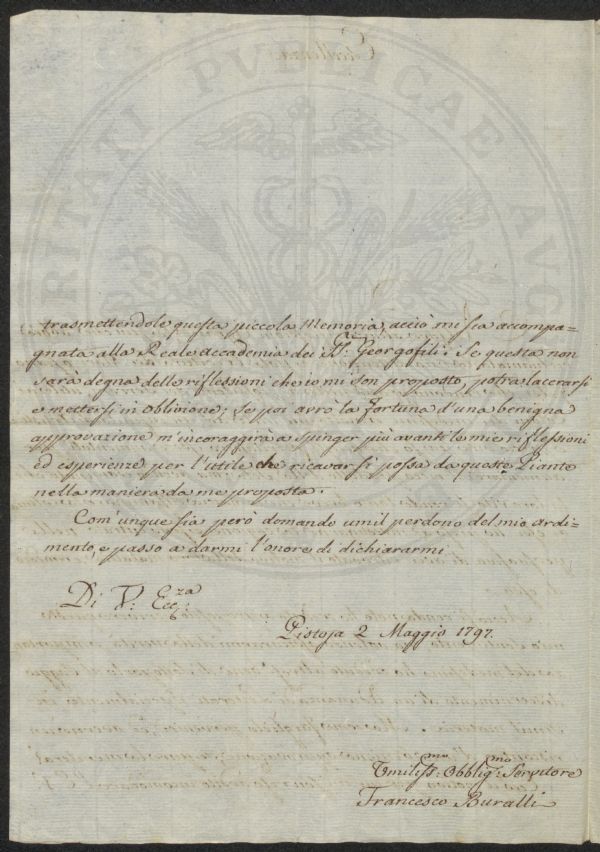 PROSPERITATI PVBLICAE AVGENDAE
trasmettendole questa piccola Memoria, acciò mi sia accompa=
gnata alla Reale accademia dei SS.ri Georgofili: Se questa non
sarà degna delle riflessioni che io mi son proposto, potrà lacerarsi
e mettersi in oblivione; Se poi avrò la fortuna d'una benigna
approvazione m'incoraggirà a spinger più avanti le mie riflessioni
ed esperienze per l'utile che ricavar si possa da queste Piante
nella maniera da me proposta.
Com'unque sia però domando umil perdono del mio ardi=
mento, e passo a darmi l'onore di dichiararmi
Di V: Ecc:za
Pistoja 2 Maggio 1797.
Umiliss:mo Obblig:mo Servitore
Francesco Buralli